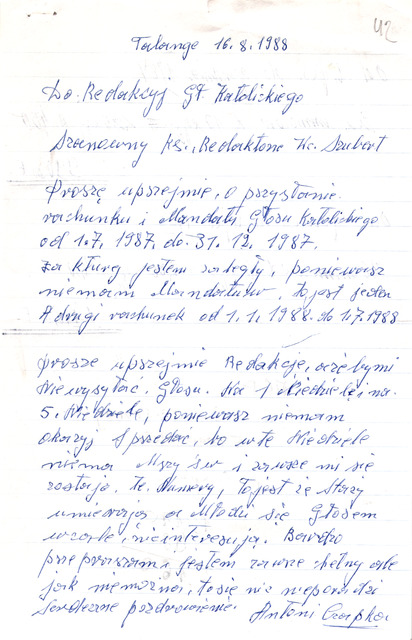 42
Talange 16.8.1988
Do. Redakcyj Gł. Katolickiego
Szanowny Ks., Redaktorze Ks. Szubert
Proszę upszejmie, o przysłanie
rachunku i Mandatu Głosu Katolickiego
od 1.7. 1987. do. 31. 12. 1987.
za któwy jestem zaległy, poniewasz
niemam Mandatów, to jest jeden
A drugi rachunek od 1.1. 1988. do 1.7.1988
Prosze upszejmie Redakcje, arzebymi
Niewysyłać. Głosu. Na 1 Niedziele i na.
5. Niedziele, poniewasz niemam
okazyj Sprzedać, bo w te Niedziele
niema Mszy św. i zawsze mi się
zostają. te. Numery, to jest że Starzy
umierają a Młodzi się Głosem
wcale, nieinteresują. Bardzo
przepraszam i jestem zawsze hetny ale
jak niemożna, to się nic nieporadzi
Serdeczne pozdrowienie. Antoni Czapka